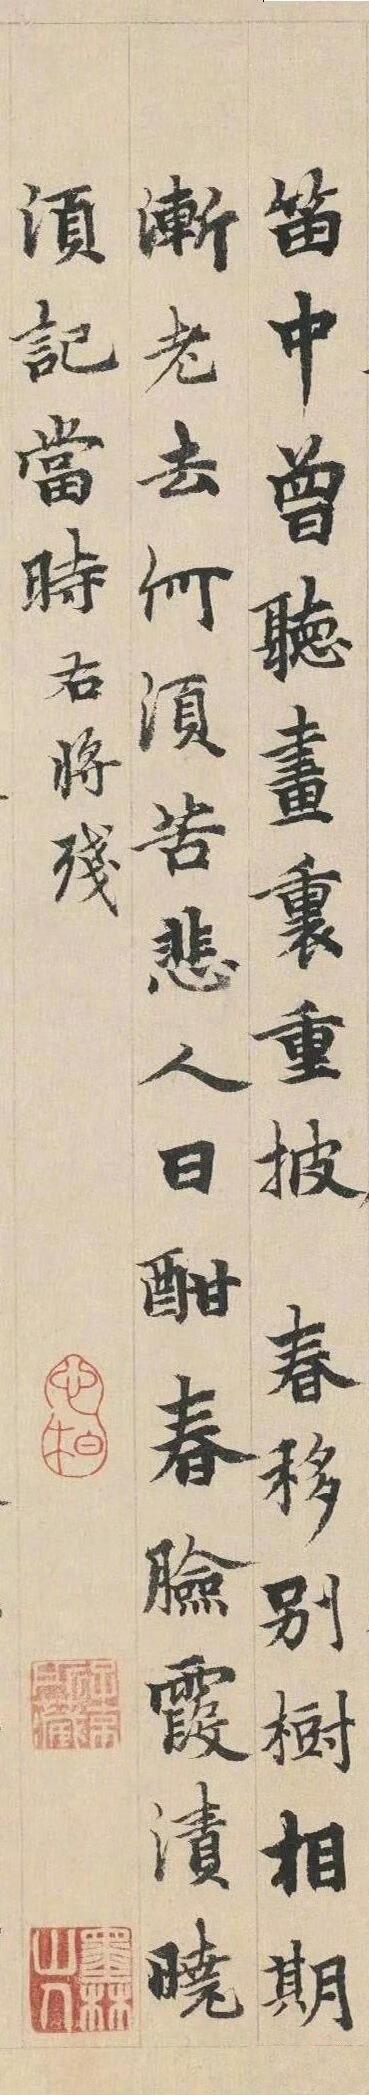 笛中曾聽畫裏重披 春移別樹相期
漸老去何須苦悲人日酣春臉霞漬曉
須記當時右將殘
墨林山人